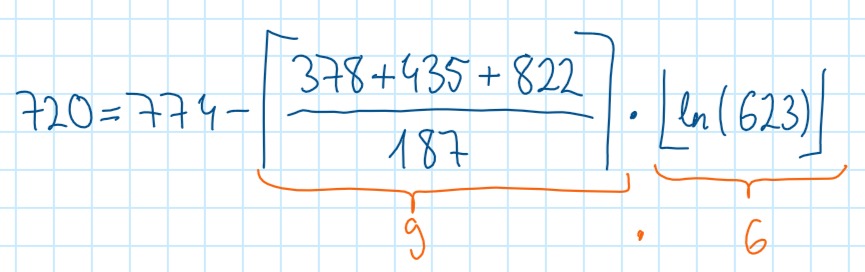 720 = 774 - ⌈(378 + 435 + 822) / 187⌉ · ⌊ln(623)⌋
9 · 6